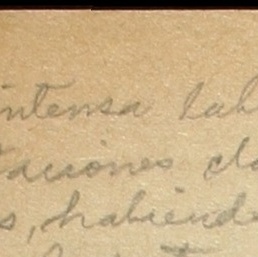 intensa lab
taciones cla
s, habiendo